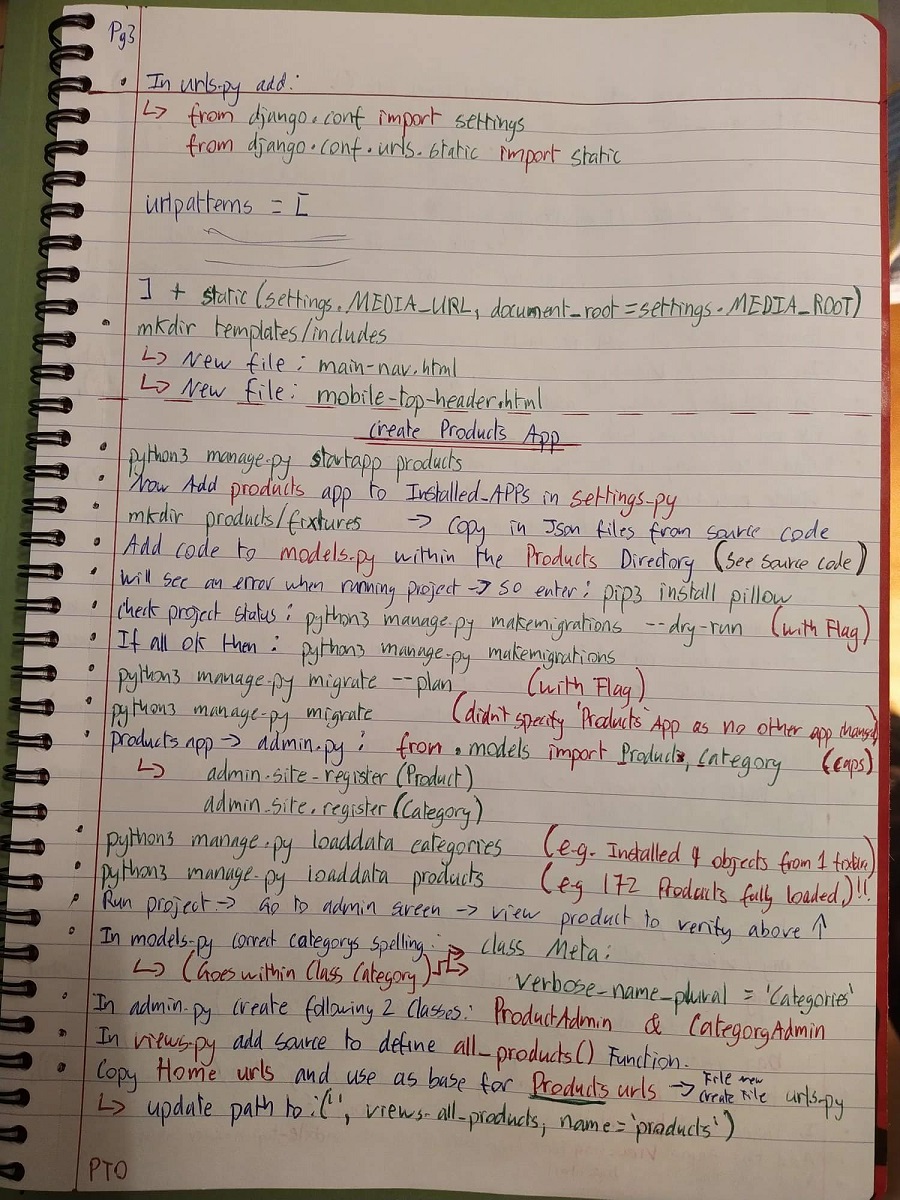 Pg3
• In urls.py add:
↳ from django.conf import settings
from django.conf.urls.static import static
urlpatterns = [
] + static(settings.MEDIA_URL, document_root=settings.MEDIA_ROOT)
• mkdir templates/includes
↳ New file: main-nav.html
↳ New file: mobile-top-header.html
Create Products App
• python3 manage.py startapp products
• Now Add products app to Installed_APPs in settings.py
• mkdir products/fixtures → Copy in Json files from source code
• Add code to models.py within the Products Directory (see source code)
• Will see an error when running project → so enter: pip3 install pillow
• check project status: python3 manage.py makemigrations --dry-run (with Flag)
• If all OK then: python3 manage.py makemigrations
• python3 manage.py migrate --plan (with Flag)
• python3 manage.py migrate (didn't specify 'Products' App as no other app changed)
• products app → admin.py: from .models import Product, Category (caps)
↳ admin.site.register(Product)
admin.site.register(Category)
• python3 manage.py loaddata categories (e.g. Installed 4 objects from 1 fixture)
• python3 manage.py loaddata products (e.g 172 Products fully loaded)!!
• Run project → Go to admin screen → view product to verify above ↑
• In models.py correct categorys spelling: → class Meta:
↳ (Goes within Class Category) → verbose_name_plural = 'Categories'
• In admin.py create following 2 classes: ProductAdmin & CategorgAdmin
• In views.py add source to define all_products() Function.
• Copy Home urls and use as base for Products urls → File new Create File urls.py
↳ update path to:('', views.all_products, name='products')
PTO